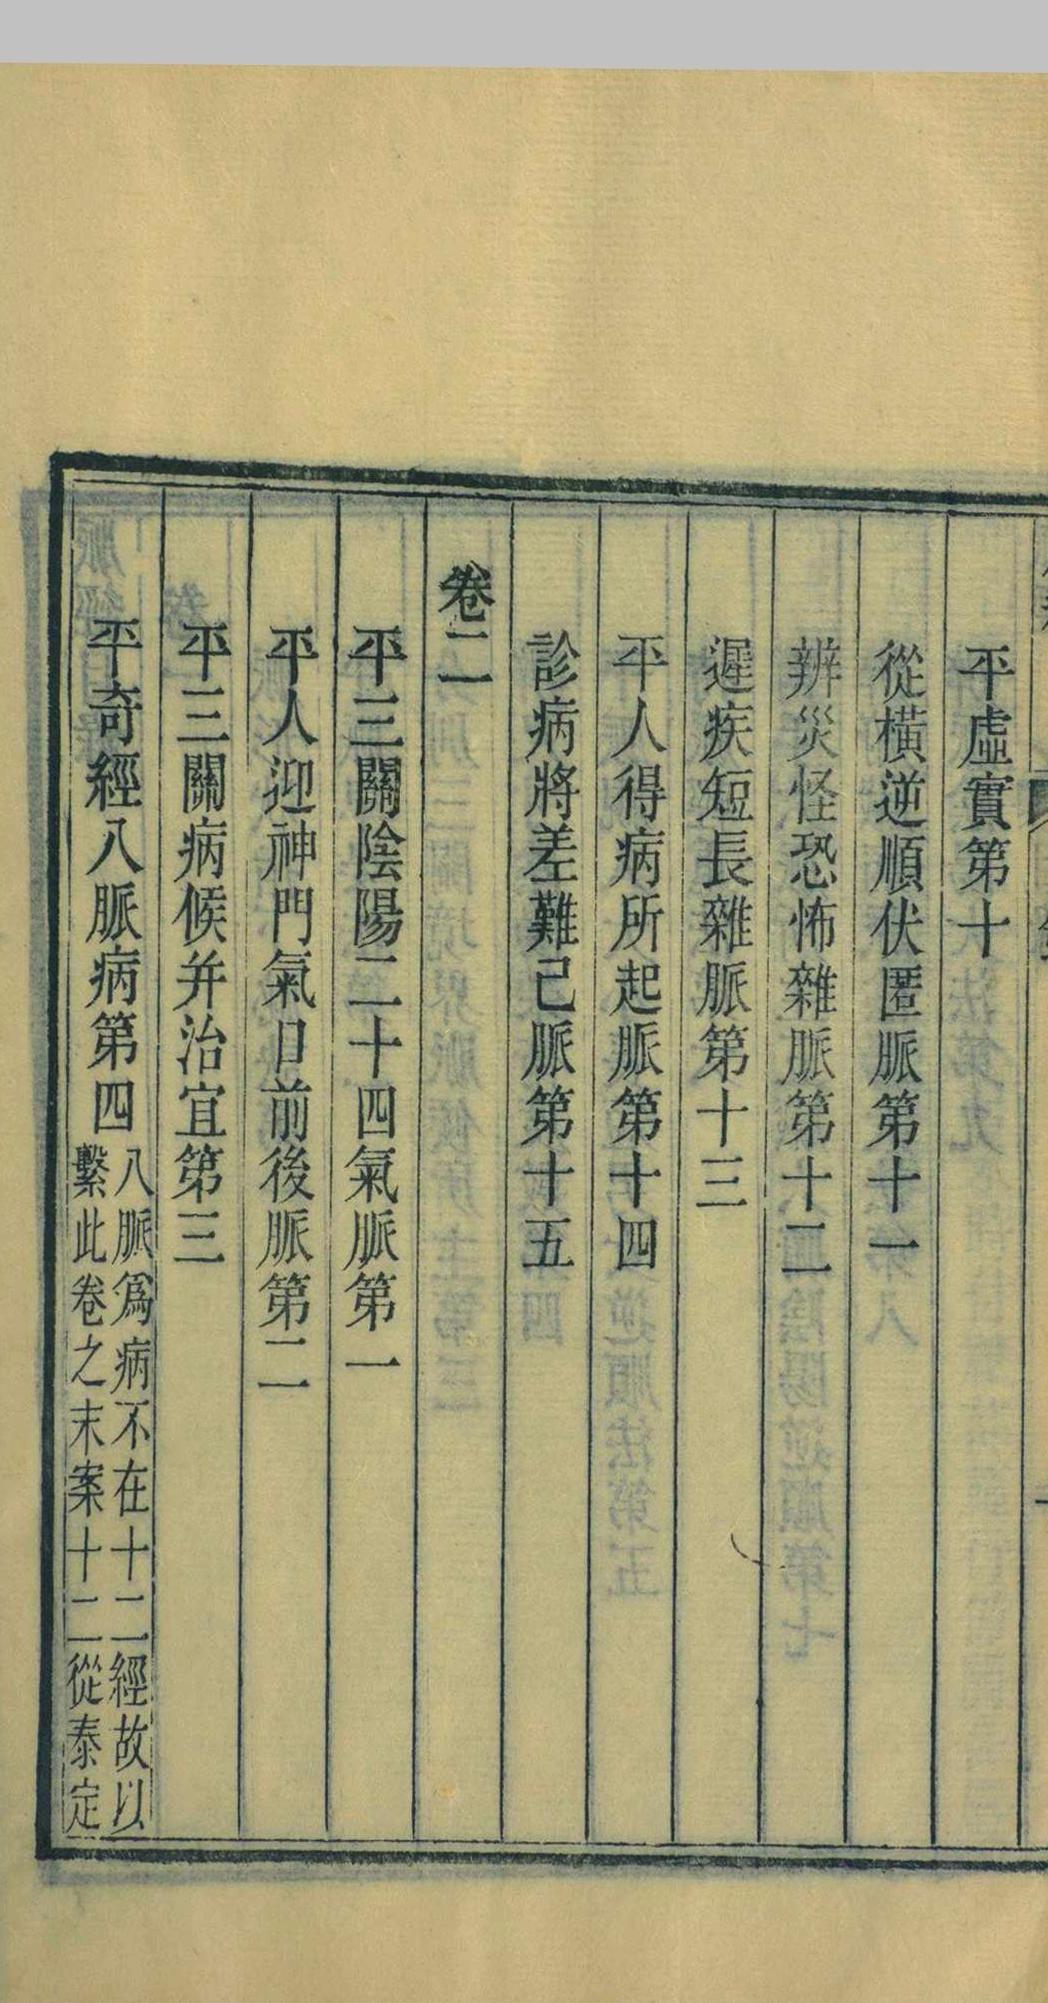 平虛實第十
從橫逆順伏匿脈第十一
辨災怪恐怖雜脈第十二
遲疾短長雜脈第十三
平人得病所起脈第十四
診病將差難已脈第十五
卷二
平三關陰陽二十四氣脈第一
平人迎神門氣口前後脈第二
平三關病候并治宜第三
平奇經八脈病第四
八脈爲病不在十二經故以
繫此卷之末案十二從泰定